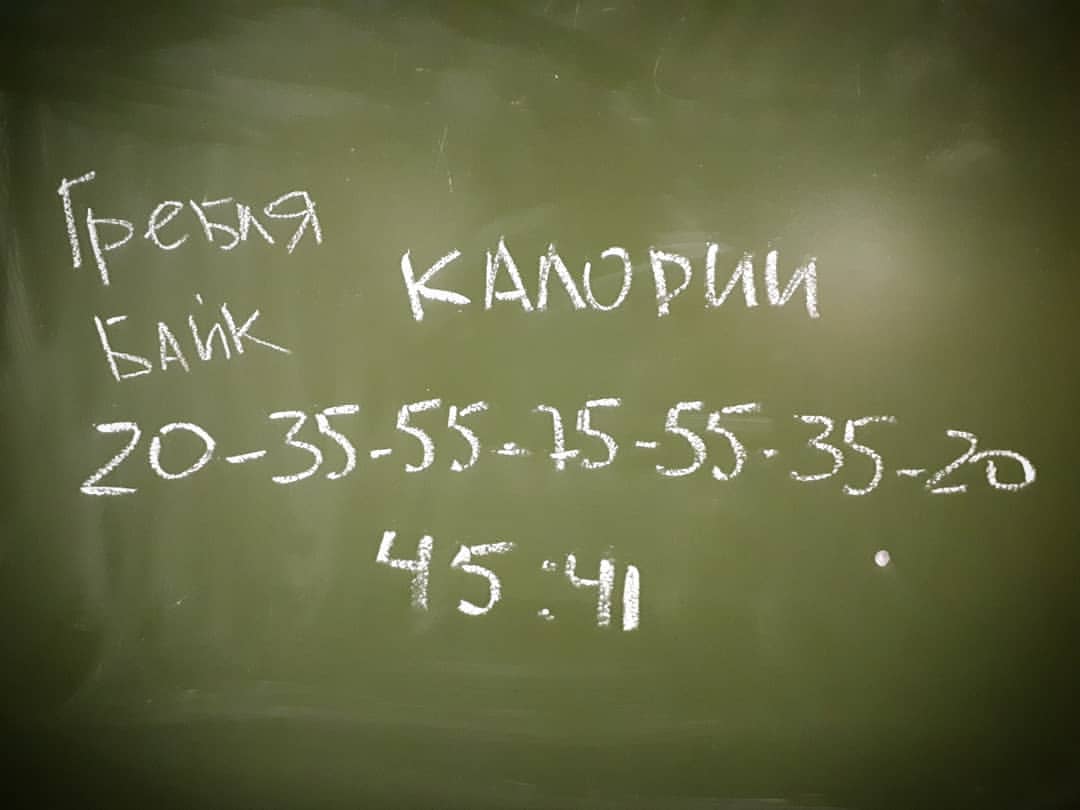 Гребля
КАЛОРИИ
БАЙК
20-35-55-75-55-35-20
45:41